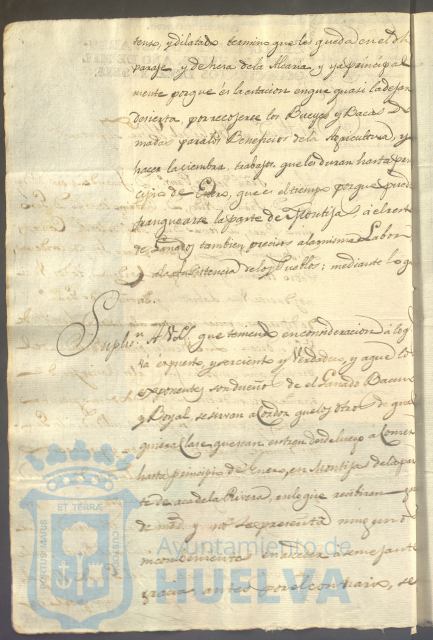 tenso, y dilatado termino que les queda en el dho
paraje, y dehera de la Alcaria, y ya principal
mente porque es la estacion en que quasi la dejan
desierta, por recojerse los Bueyes y Bacas do
madas para los Beneficios de la Agricultura, y
hacer la siembra, trabajos que les duran hasta prin
cipio de Enero, que es el tiempo porque puede
franquearse la parte de Montija, a el resto
de Ganados tambien precisos a la misma Labor
y a la subsistencia de los Pueblos; mediante lo q
Supco. A V.S. que teniendo en consideracion a lo q
va expuesto y ser cierto y Verdadero, y a que los
exponentes son dueños de el Ganado Bacuno
y Boyal, se sirvan acordar que los otros de qual
quiera Clase que sean entren desde luego a Comer
hasta principio de Enero, en Montija de la par
te de aca de la Rivera, en lo que reciviran
de md. y no se presenta ningun
incombeniente en hacer semejante
gracia antes por el contrario, se
ET TERRÆ
PORTUS MARIS
CUSTODIA
Ayuntamiento de
HUELVA